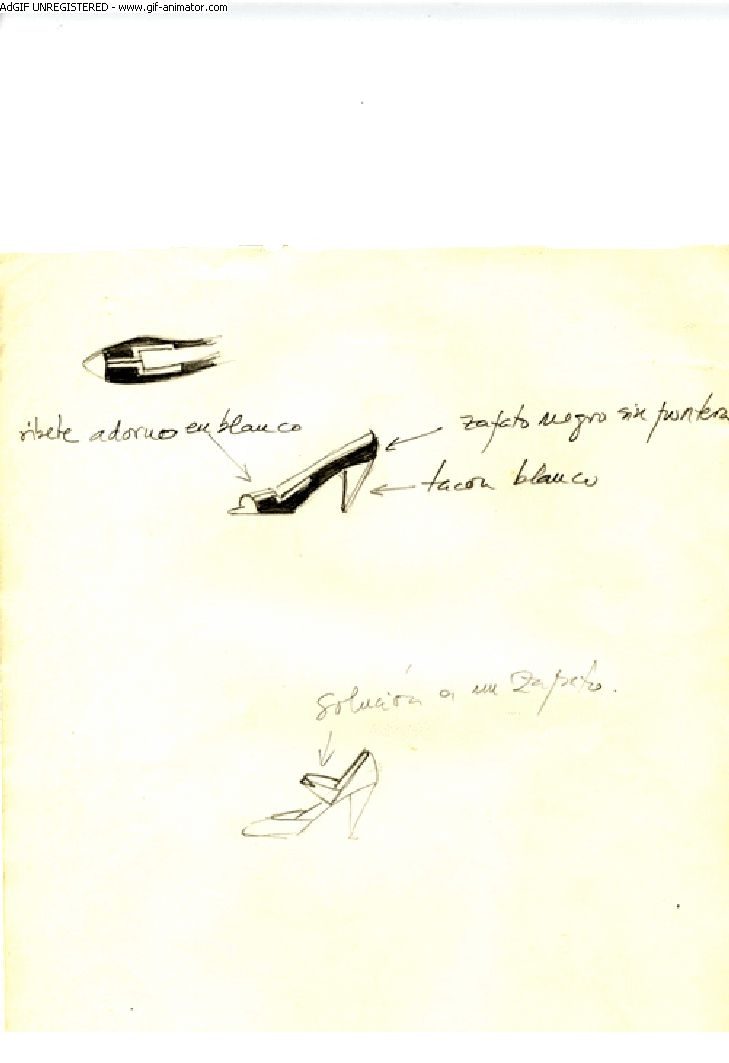 AdGIF UNREGISTERED - www.gif-animator.com
ribete adorno en blanco
zapato negro sin puntera
tacon blanco
Solución a un Zapato.